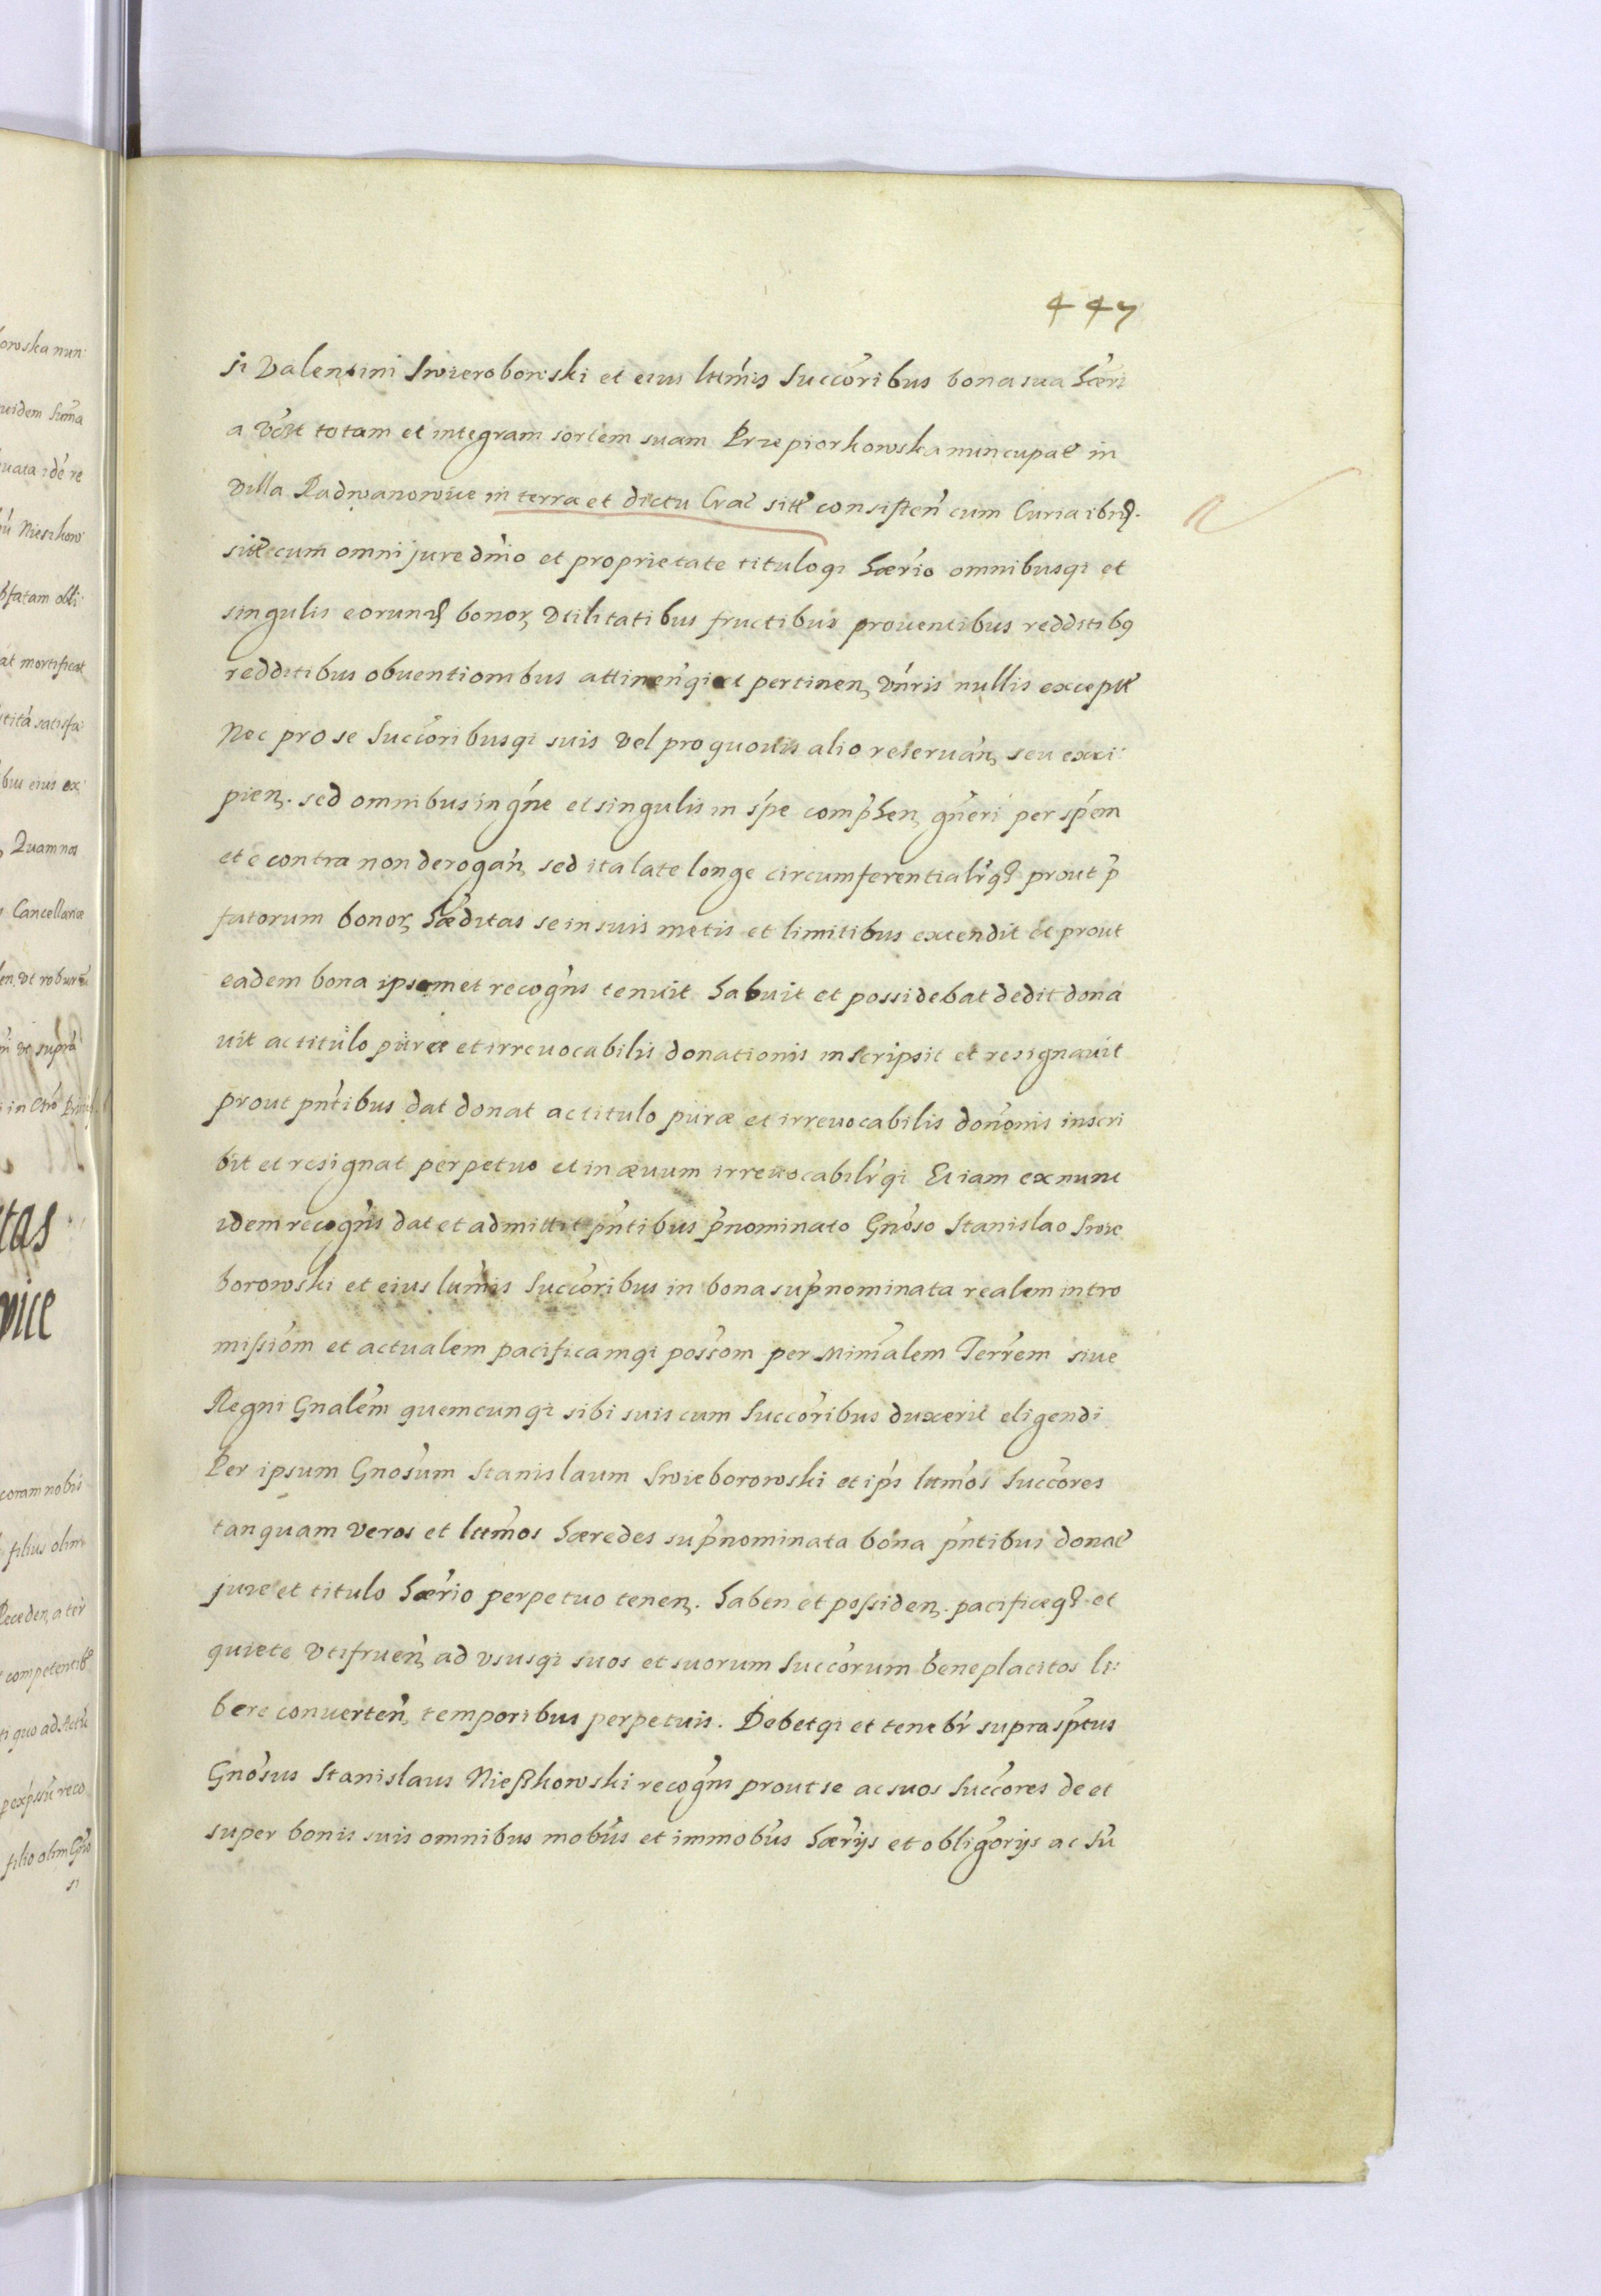 447
si Valentini Swieroborwski et eius lttimis Succoribus bona sua hæri
a vdzt totam et integram sortem suam Przepiorkowska nuncupat in
Villa Radwanowice in terra et dictu Crac sitt consisten cum Curia ibid.
sitt cum omni jure dnio et proprietate tituloqi hærio omnibusqi et
singulis eorund bonor utilitatibus fructibus prouentibus redditibq
redditibus obuentionibus attinenqi et pertinen, vnris nullis except
Nec pro se Succoribusqi suis vel pro quouis alio reseruan, seu exci:
pien. sed omnibus in gne et singulis in spe comphen, gneri per spem
et e contra non derogan, sed ita late longe circumferentialrq prout p
fatorum bonor, hæditas se in suis metis et limitibus extendit et prout
eadem bona ipsemet recogns tenuit habuit et possidebat dedit dona
uit ac titulo puræ et irreuocabilis donationis inscripsit et resignauit
prout pntibus dat donat ac titulo puræ et irreuocabilis dononis inscri
bit et resignat perpetuo et in æuum irreuocabilrqi Et iam ex nunc
idem recogns dat et admittit pntibus pnominato Gnoso Stanislao Swie
borowski et eius lttmis Succoribus in bona supnominata realem intro
missiom et actualem pacificamqi possom per Minialem Terrem siue
Regni Gnalem quemcunqi sibi suis cum Succoribus duxerit eligendi
Per ipsum Gnosum Stanislaum Swieborowski et ips lttmos Succores
tanquam veros et lttmos hæredes supnominata bona pntibus donat
jure et titulo hærio perpetuo tenen. haben et possiden. pacificeq et
quiete vtifruen, ad vsusqi suos et suorum Succorum beneplacitos li:
bere conuerten, temporibus perpetuis. Debetqi et tenebr supra sptus
Gnosus Stanislaus Nieszkowski recogns prout se ac suos Succores de et
super bonis suis omnibus mobus et immobus hærijs et obligorijs ac Su